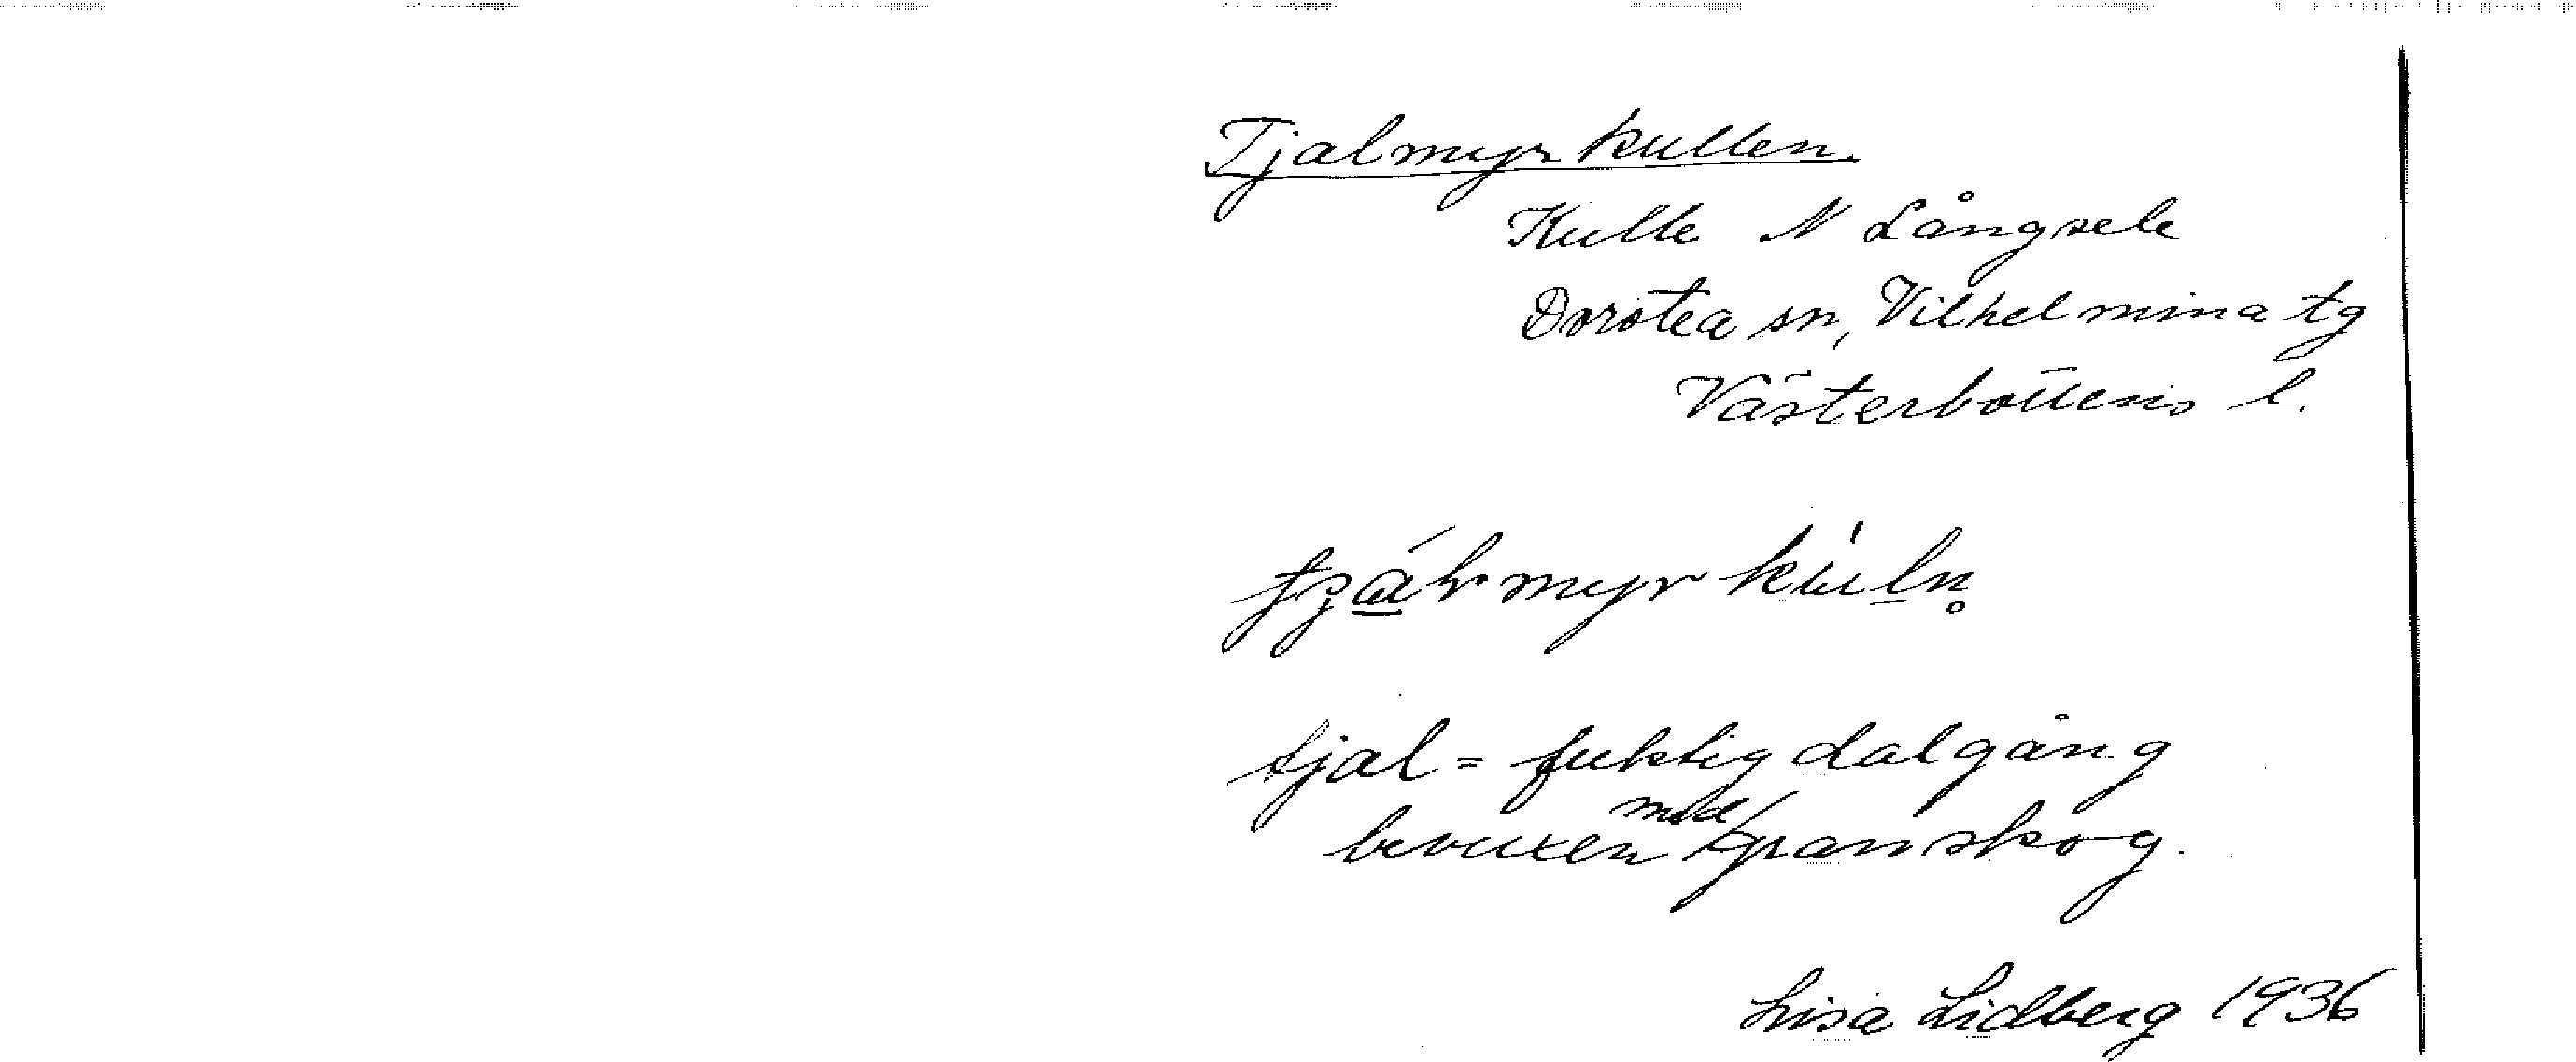 Tjalmyrkullen.
Kulle N Långsele
Dorotea sn, Vilhelmina tg
Västerbottens l.
tjal = fuktig dalgång
bevuxen med granskog.
Lisa Lidberg 1936